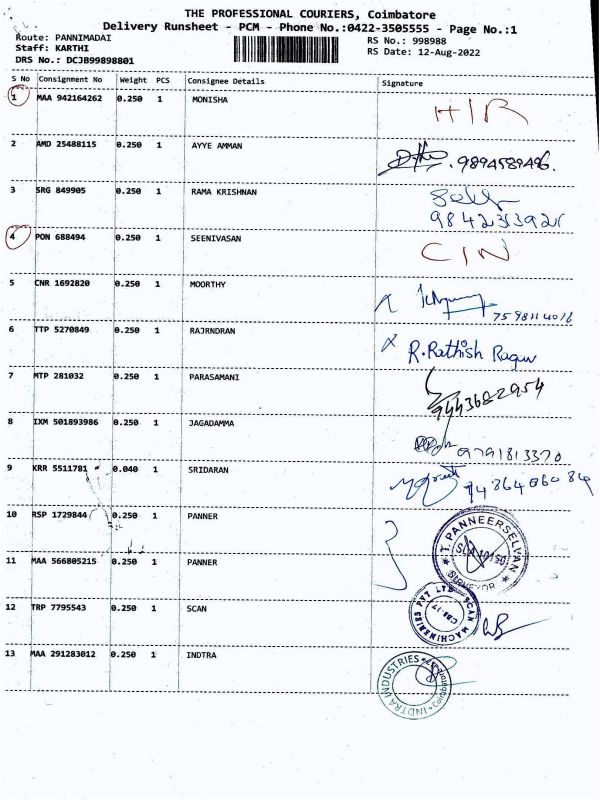 THE PROFESSIONAL COURIERS, Coimbatore
Delivery Runsheet - PCM - Phone No.:0422-3505555 - Page No.:1
Route: PANNIMADAI
RS No.: 998988
Staff: KARTHI
RS Date: 12-Aug-2022
DRS No.: DCJB99898801
S No Consignment No Weight PCS Consignee Details Signature
1 MAA 942164262 0.250 1 MONISHA H/R
2 AMD 25488115 0.250 1 AYYE AMMAN
3 SRG 849905 0.250 1 RAMA KRISHNAN
4 PON 688494 0.250 1 SEENIVASAN C/N
5 CNR 1692820 0.250 1 MOORTHY
6 TTP 5270849 0.250 1 RAJRNDRAN R. Rathish Ragav
7 MTP 281032 0.250 1 PARASAMANI 9443682954
8 IXM 501893986 0.250 1 JAGADAMMA 9791813370
9 KRR 5511781 0.040 1 SRIDARAN
10 RSP 1729844 0.250 1 PANNER
T. PANNEERSELVAN
SURVEYOR
11 MAA 566805215 0.250 1 PANNER
12 TRP 7795543 0.250 1 SCAN
SCAN MACHINERIES PVT LTD
CBE-17
13 MAA 291283012 0.250 1 INDTRA
INDTRA INDUSTRIES